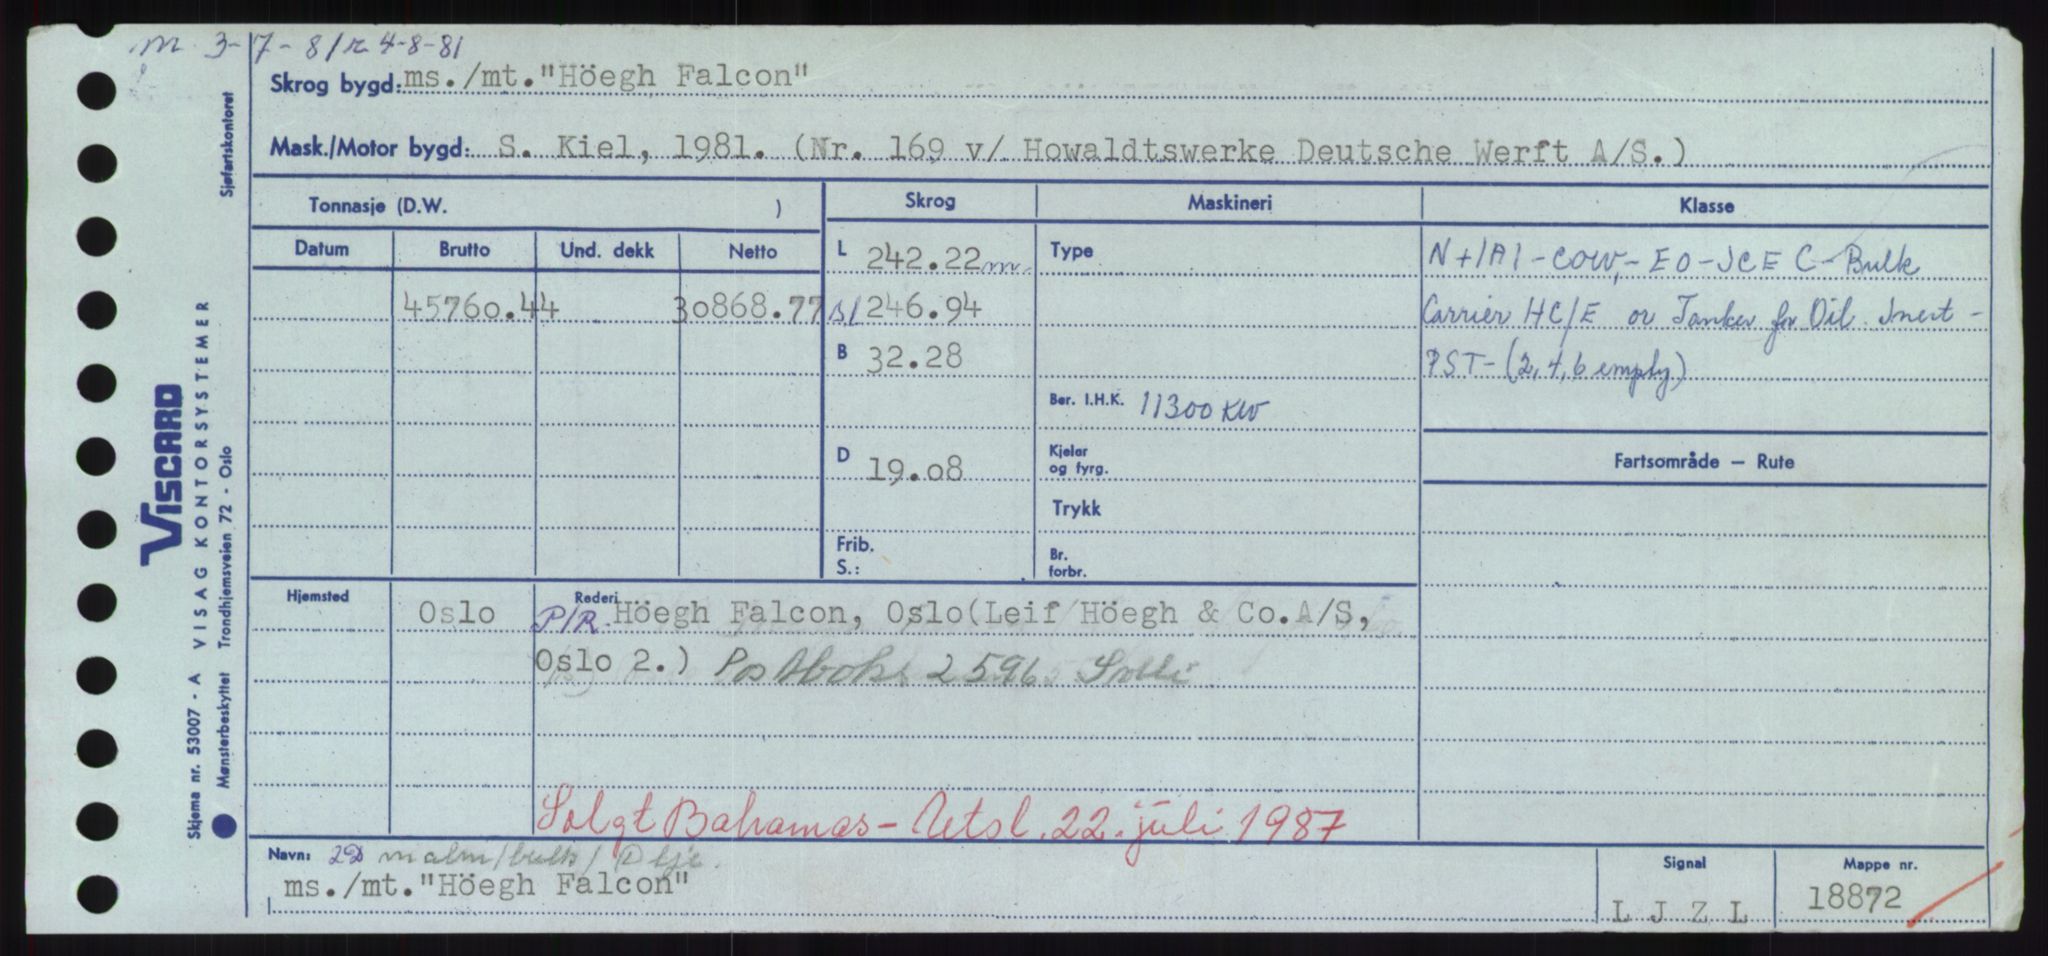 m 3-7-81 r 4-8-81
Skrog bygd: ms./mt."Höegh Falcon"
Mask./Motor bygd: S. Kiel, 1981. (Nr. 169 v/ Howaldtswerke Deutsche Werft A/S.)
Sjøfartskontoret
Tonnasje (D.W. )
Skrog
Maskineri
Klasse
Datum
Brutto
Und. dekk
Netto
L 242.22 m
Type
N+1A1-COW,-EO-ICE C-Bulk
45760.44
30868.77
sl 246.94
Carrier HC/E or Tanker for Oil Inert-
B 32.28
PST-(2,4,6 empty)
Ber. I.H.K. 11300 KW
D 19.08
Kjelar
og fyrg.
Fartsområde — Rute
Trykk
Frib.
S.:
Br.
forbr.
Hjemsted
Oslo
Rederi
P/R Höegh Falcon, Oslo(Leif Höegh & Co.A/S,
Oslo 2.) Postboks 2596 Solli
Solgt Bahamas - Utsl. 22. juli 1987
Navn: 2D malm/bulk/Olje
ms./mt."Höegh Falcon"
Signal
L J Z L
Mappe nr.
18872
VISCARD
VISAG KONTORSYSTEMER
Trondhjemsveien 72 - Oslo
Skjema nr. 53007 - A
Mønsterbeskyttet